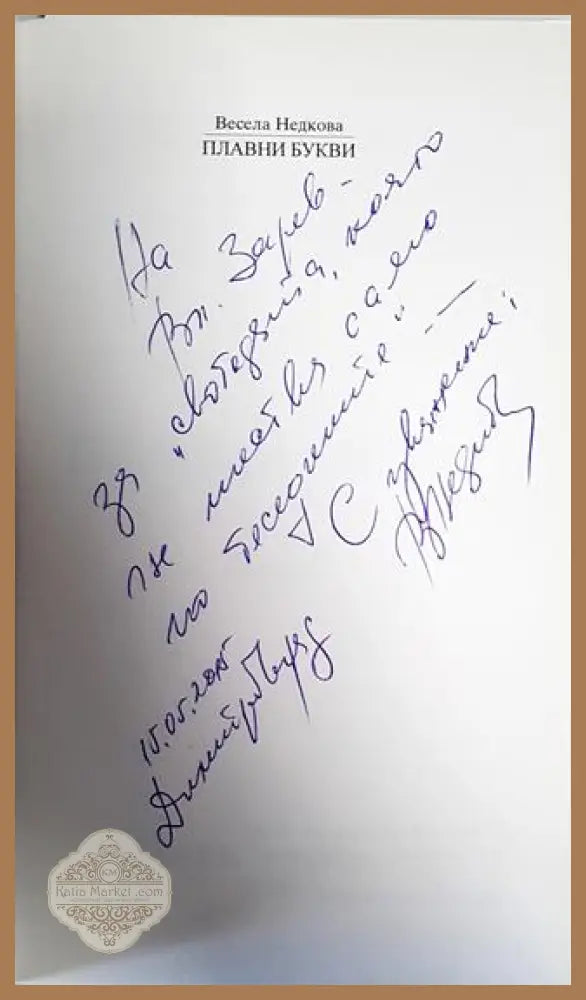 Весела Недкова
ПЛАВНИ БУКВИ
На
Вл. Зарев –
за „свободата, която
не шества само
по
" –
С уважение:
ВНедкова
15.05.2015
Димитровград
Katia Market .com
KM